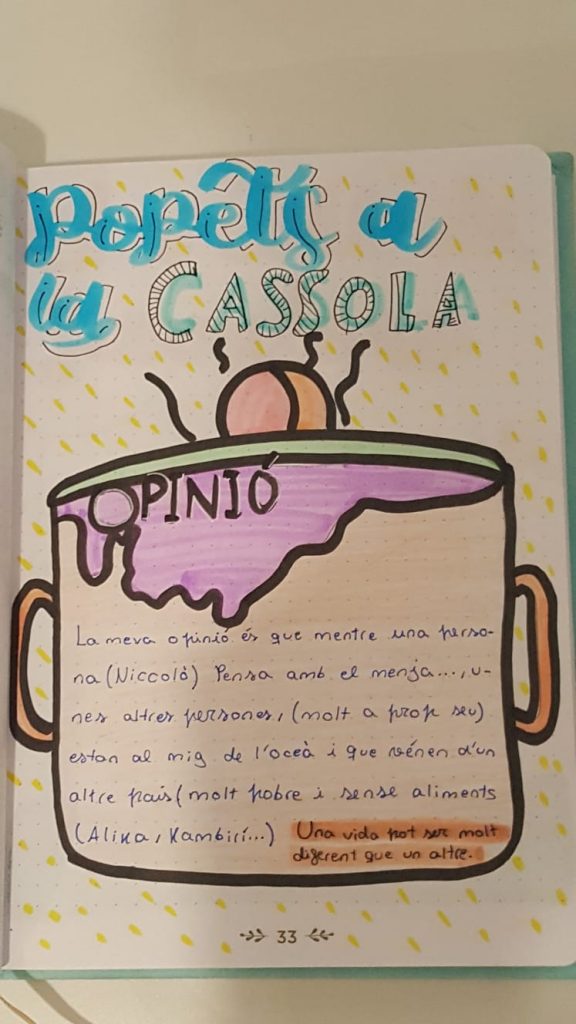 Popets a
la CASSOLA
OPINIÓ
La meva opinió és que mentre una perso-
na (Niccolò) Pensa amb el menja..., u-
nes altres persones, (molt a prop seu)
estan al mig de l'oceà i que vénen d'un
altre país (molt pobre i sense aliments
(Alika, Kambirí...) Una vida pot ser molt
diferent que un altre.
33